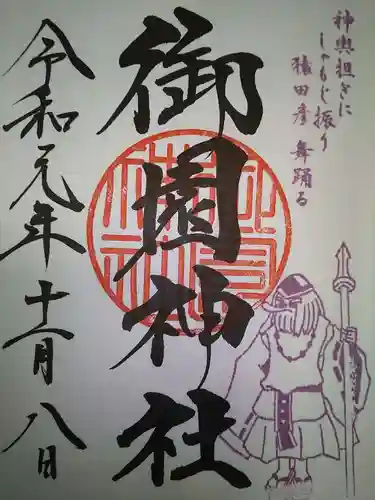 神輿担ぎに
しゃもじ振り
猿田彦 舞踊る
御園神社
令和元年十一月八日